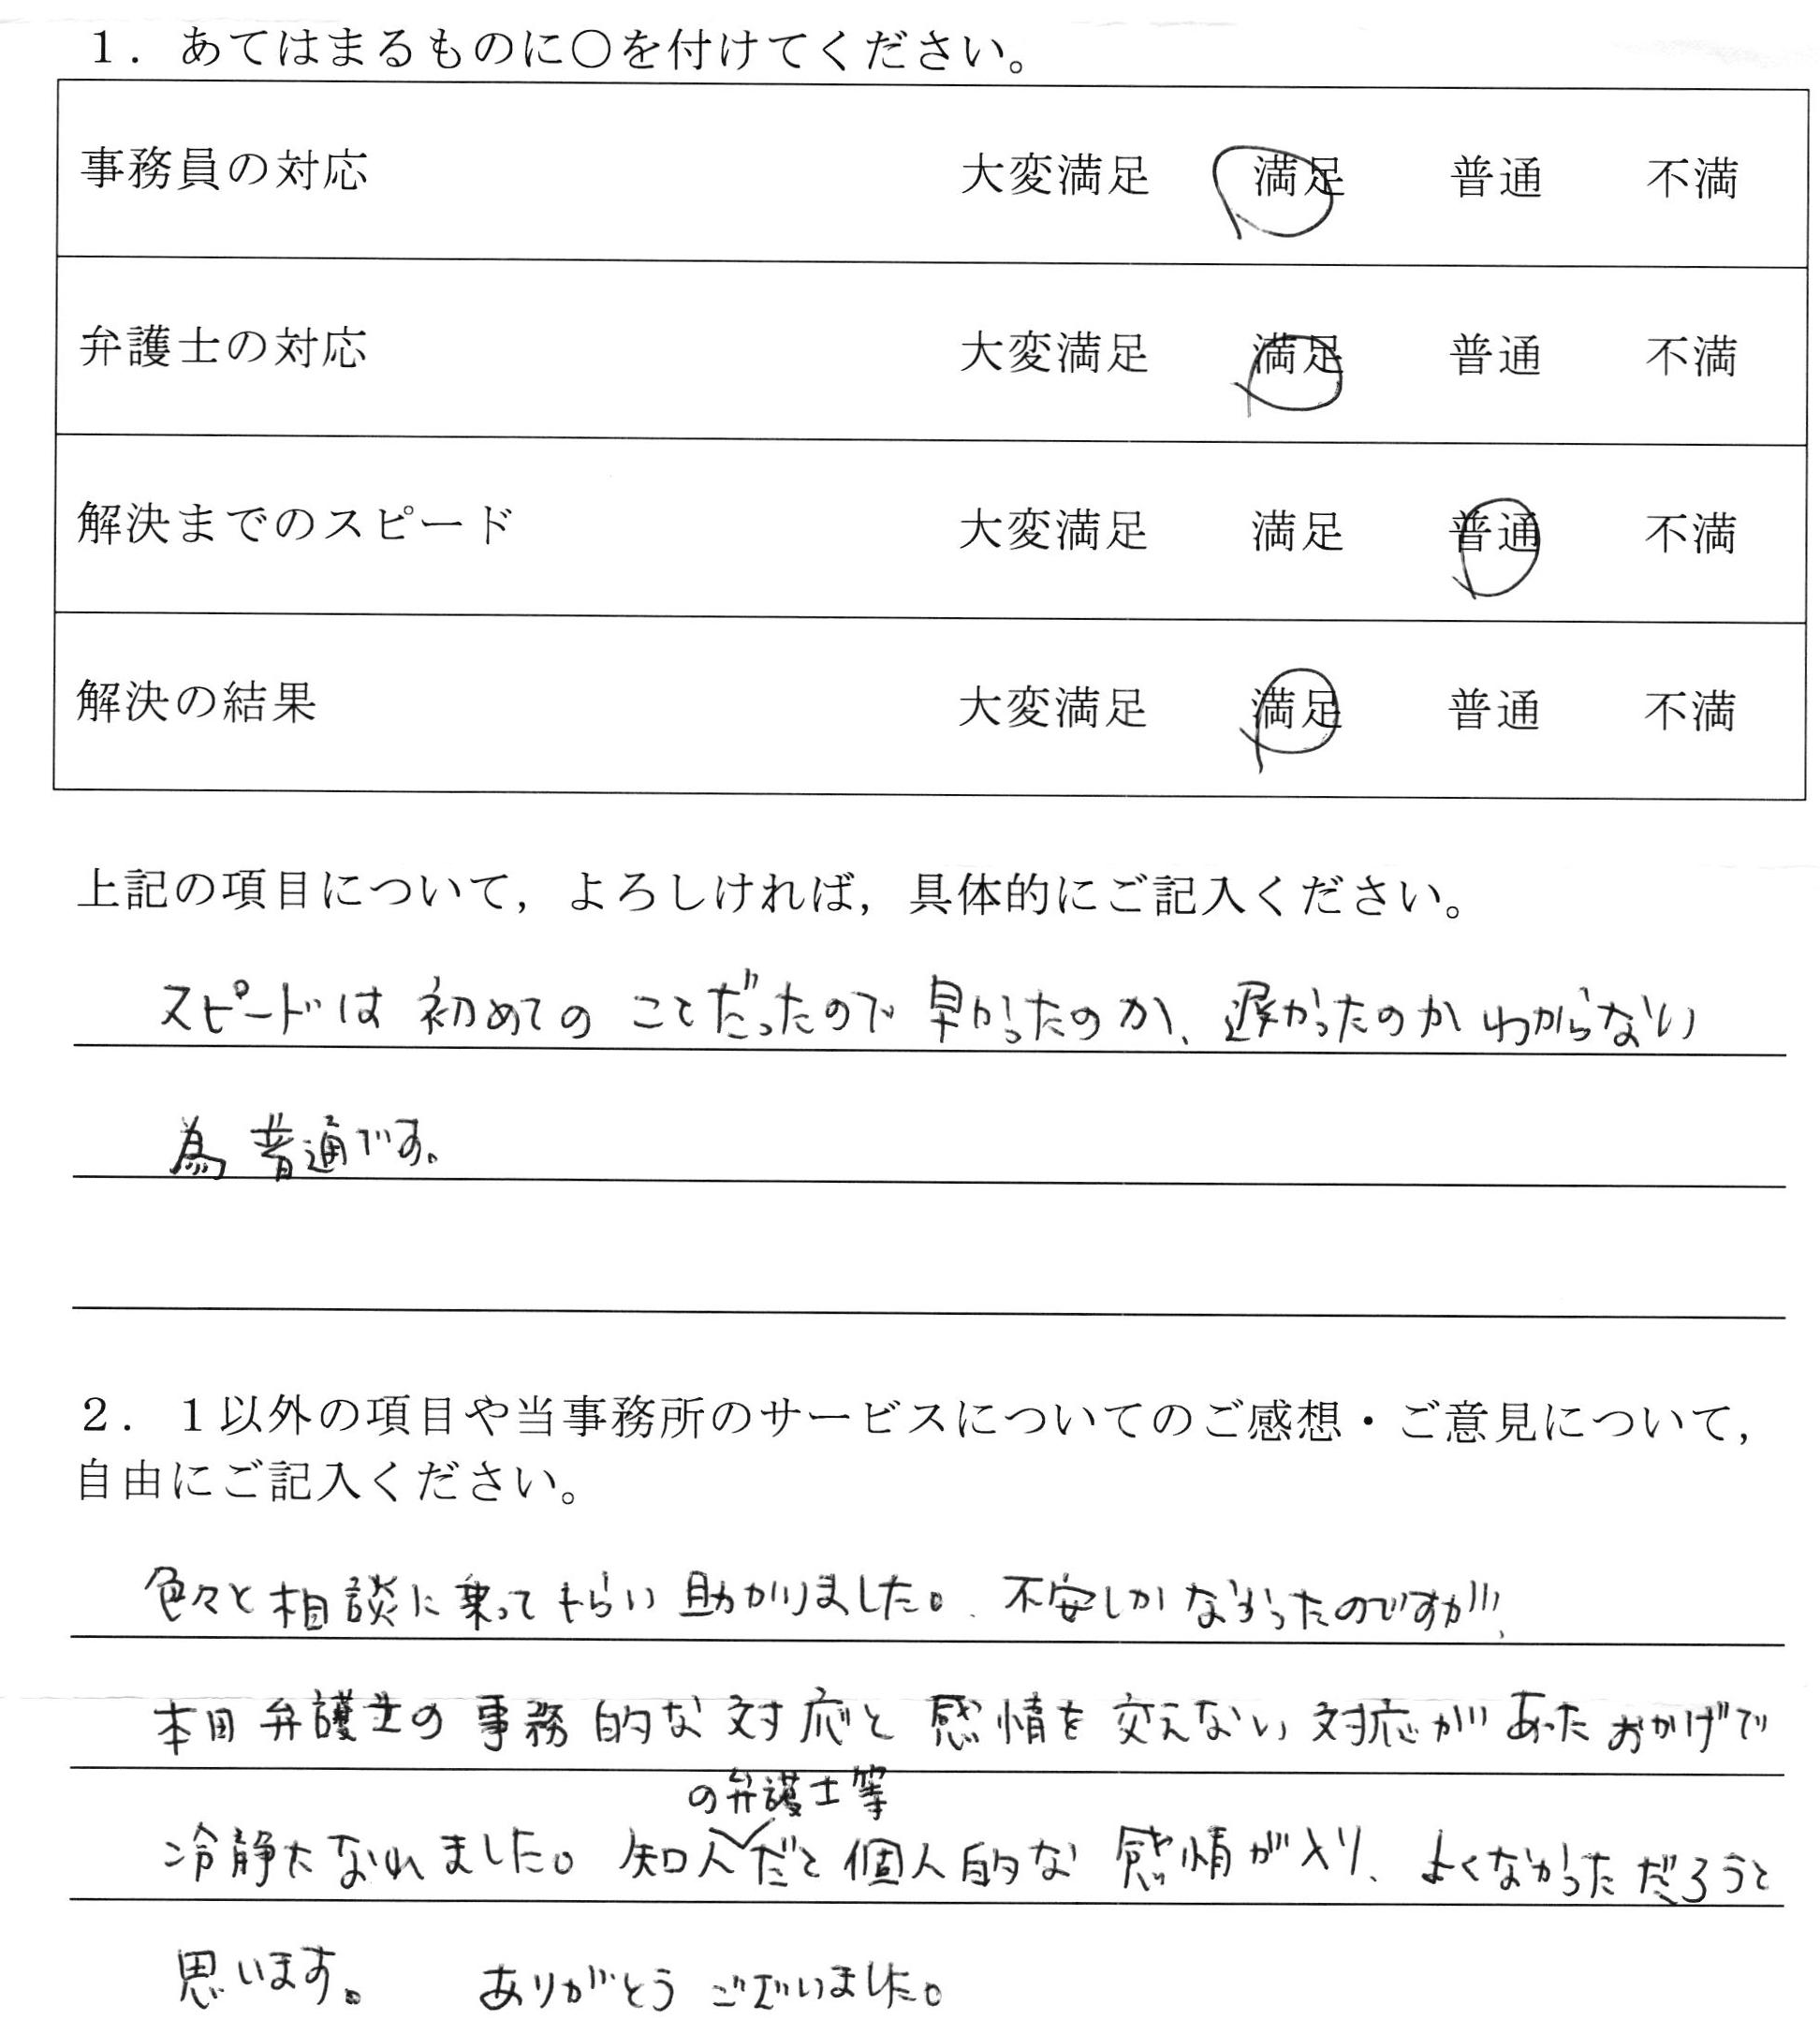 １．あてはまるものに〇を付けてください。
事務員の対応 大変満足 満足 普通 不満
弁護士の対応 大変満足 満足 普通 不満
解決までのスピード 大変満足 満足 普通 不満
解決の結果 大変満足 満足 普通 不満
上記の項目について，よろしければ，具体的にご記入ください。
スピードは初めてのことだったので早かったのか、遅かったのかわからない
為普通です。
２．１以外の項目や当事務所のサービスについてのご感想・ご意見について，
自由にご記入ください。
色々と相談に乗ってもらい助かりました。不安しかなかったのですが、
本田弁護士の事務的な対応と感情を交えない対応があったおかげで
の弁護士等
冷静になれました。知人だと個人的な感情が入り、よくなかっただろうと
思います。 ありがとうございました。